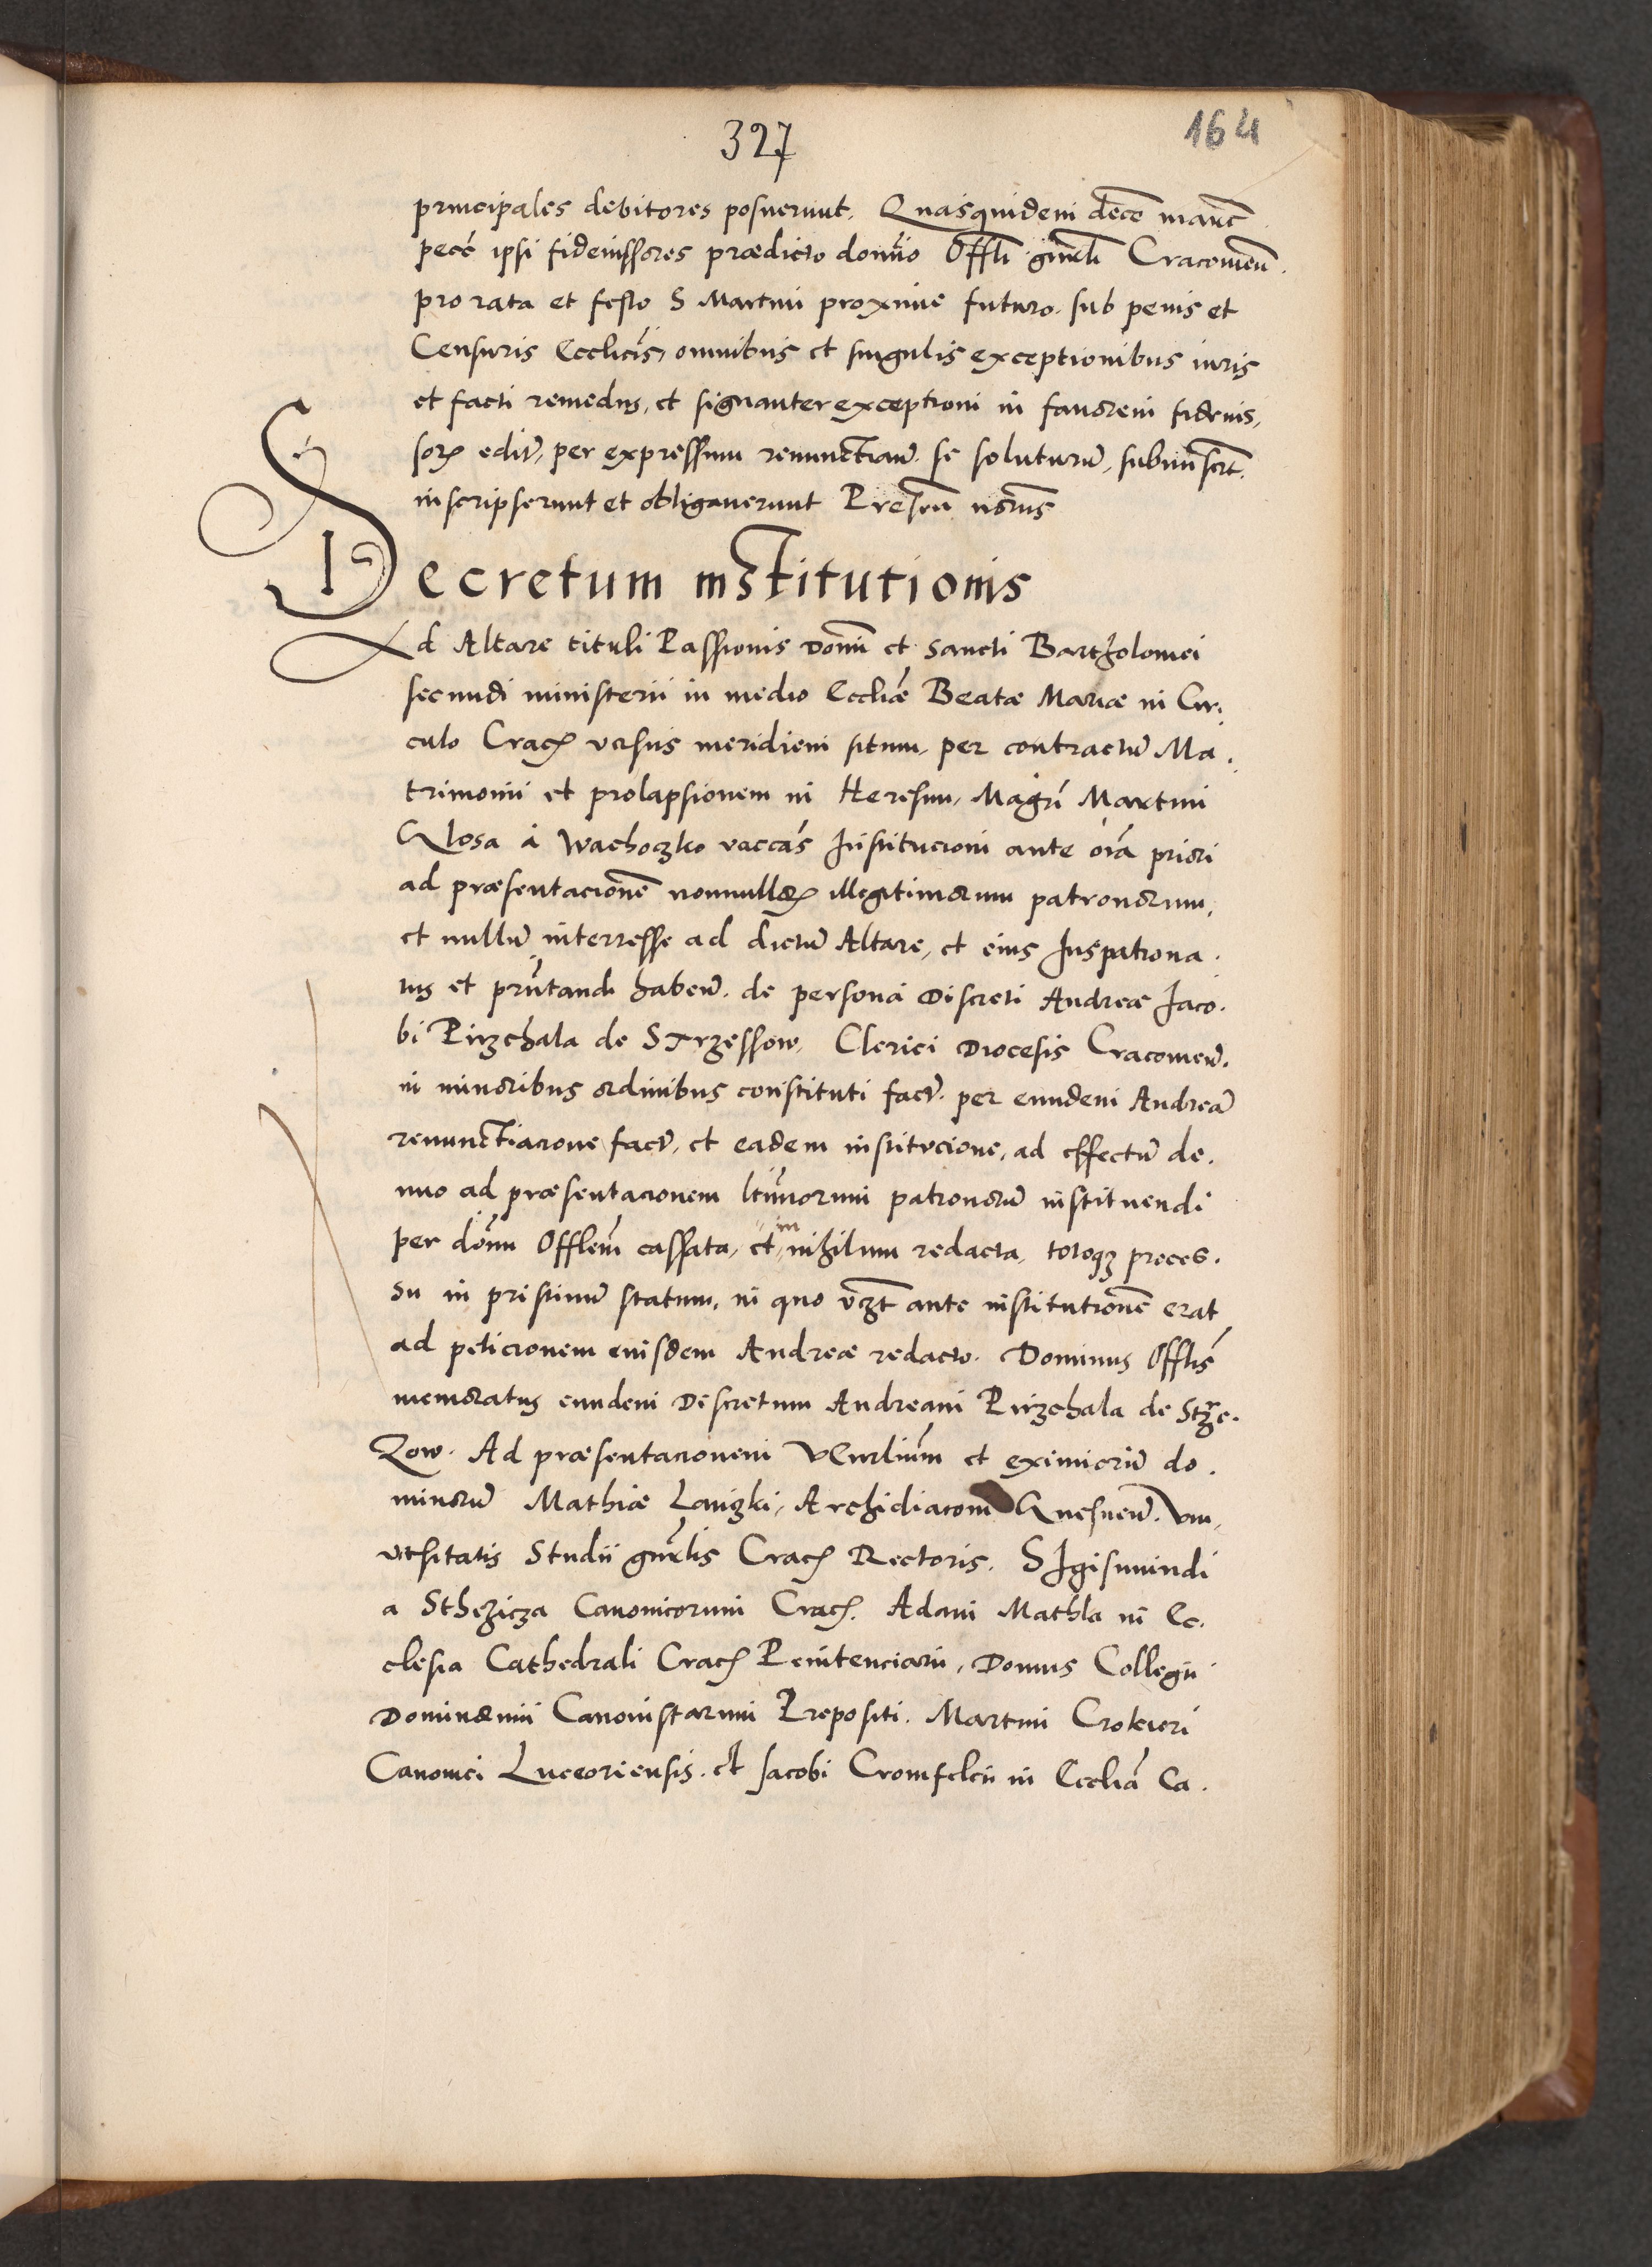 327
164
principales debitores posuerunt. Quasquidem decē marc̄
pecc̄ ipsi fideiussores prædicto domīo Offl̄i gn̄rli Cracouieñ.
pro rata et festo S Martini proxime futuro. sub penis et
Censuris Eccl̄icis, omnibus et singulis exceptionibus iuris
et facti remedijs, et signanter exceptioni in fauorem fideius,
sorꝝ edit̄, per expressum renunctiañ. se soluturū, submisert.
inscripserunt et obligauerunt
Decretum institutionis
Ad Altare tituli Passionis Domī et Sancti Bartholomei
secundi ministerii in medio Eccliæ Beatæ Mariæ in Cir,
culo Cracꝭ versus meridiem situm, per contractū Ma.
trimonii et prolapsionem in Heresim, Magr̄i Martini
Glosa à Wachoczko vaccañs Institucioni ante oīa priori
ad præsentacionē nonnullorꝝ illegitimorum patronorum,
et nullū interesse ad dictū Altare, et eius Juspatrona.
tus et prn̄tandi habeñ. de persona Discreti Andreæ Jaco.
bi Pirzchala de Strzessow, Clerici Diocesis Cracouieñ.
in minoribus ordinibus constituti fact̄. per eundem Andreā
renunctiacione fact̄, et eadem institucione, ad effectū de.
nuo ad præsentacionem ltīmorum patronorū instituendi
per dōnu Offlem̄ cassata, et in nihilum redacta, totoqꝫ proces.
su in pristinū statum, in quo vꝫt ante institutionē erat
ad peticionem eiusdem Andreæ redacto. Dominus Offlīs
memoratus eundem Discretum Andream Pirzchala de Strze.
Zow. Ad præsentacionem Vēnrlium et eximiorū do.
minorū Mathiæ Lauizki, Archidiaconi Gnesneñ. Vni,
uersitatis Studii gn̄rlis Cracꝭ Rectoris. Sigismundi
a Sthezicza Canonicorum Cracꝭ. Adam Mathla in Ec.
clesia Cathedrali Cracꝭ Penitenciarii, Domus Collegii
Dominorum Canonistarum Prepositi. Martini Crokieri
Canonici Luceoriensis. et Jacobi Cromfelcii in Eccliā Ca.